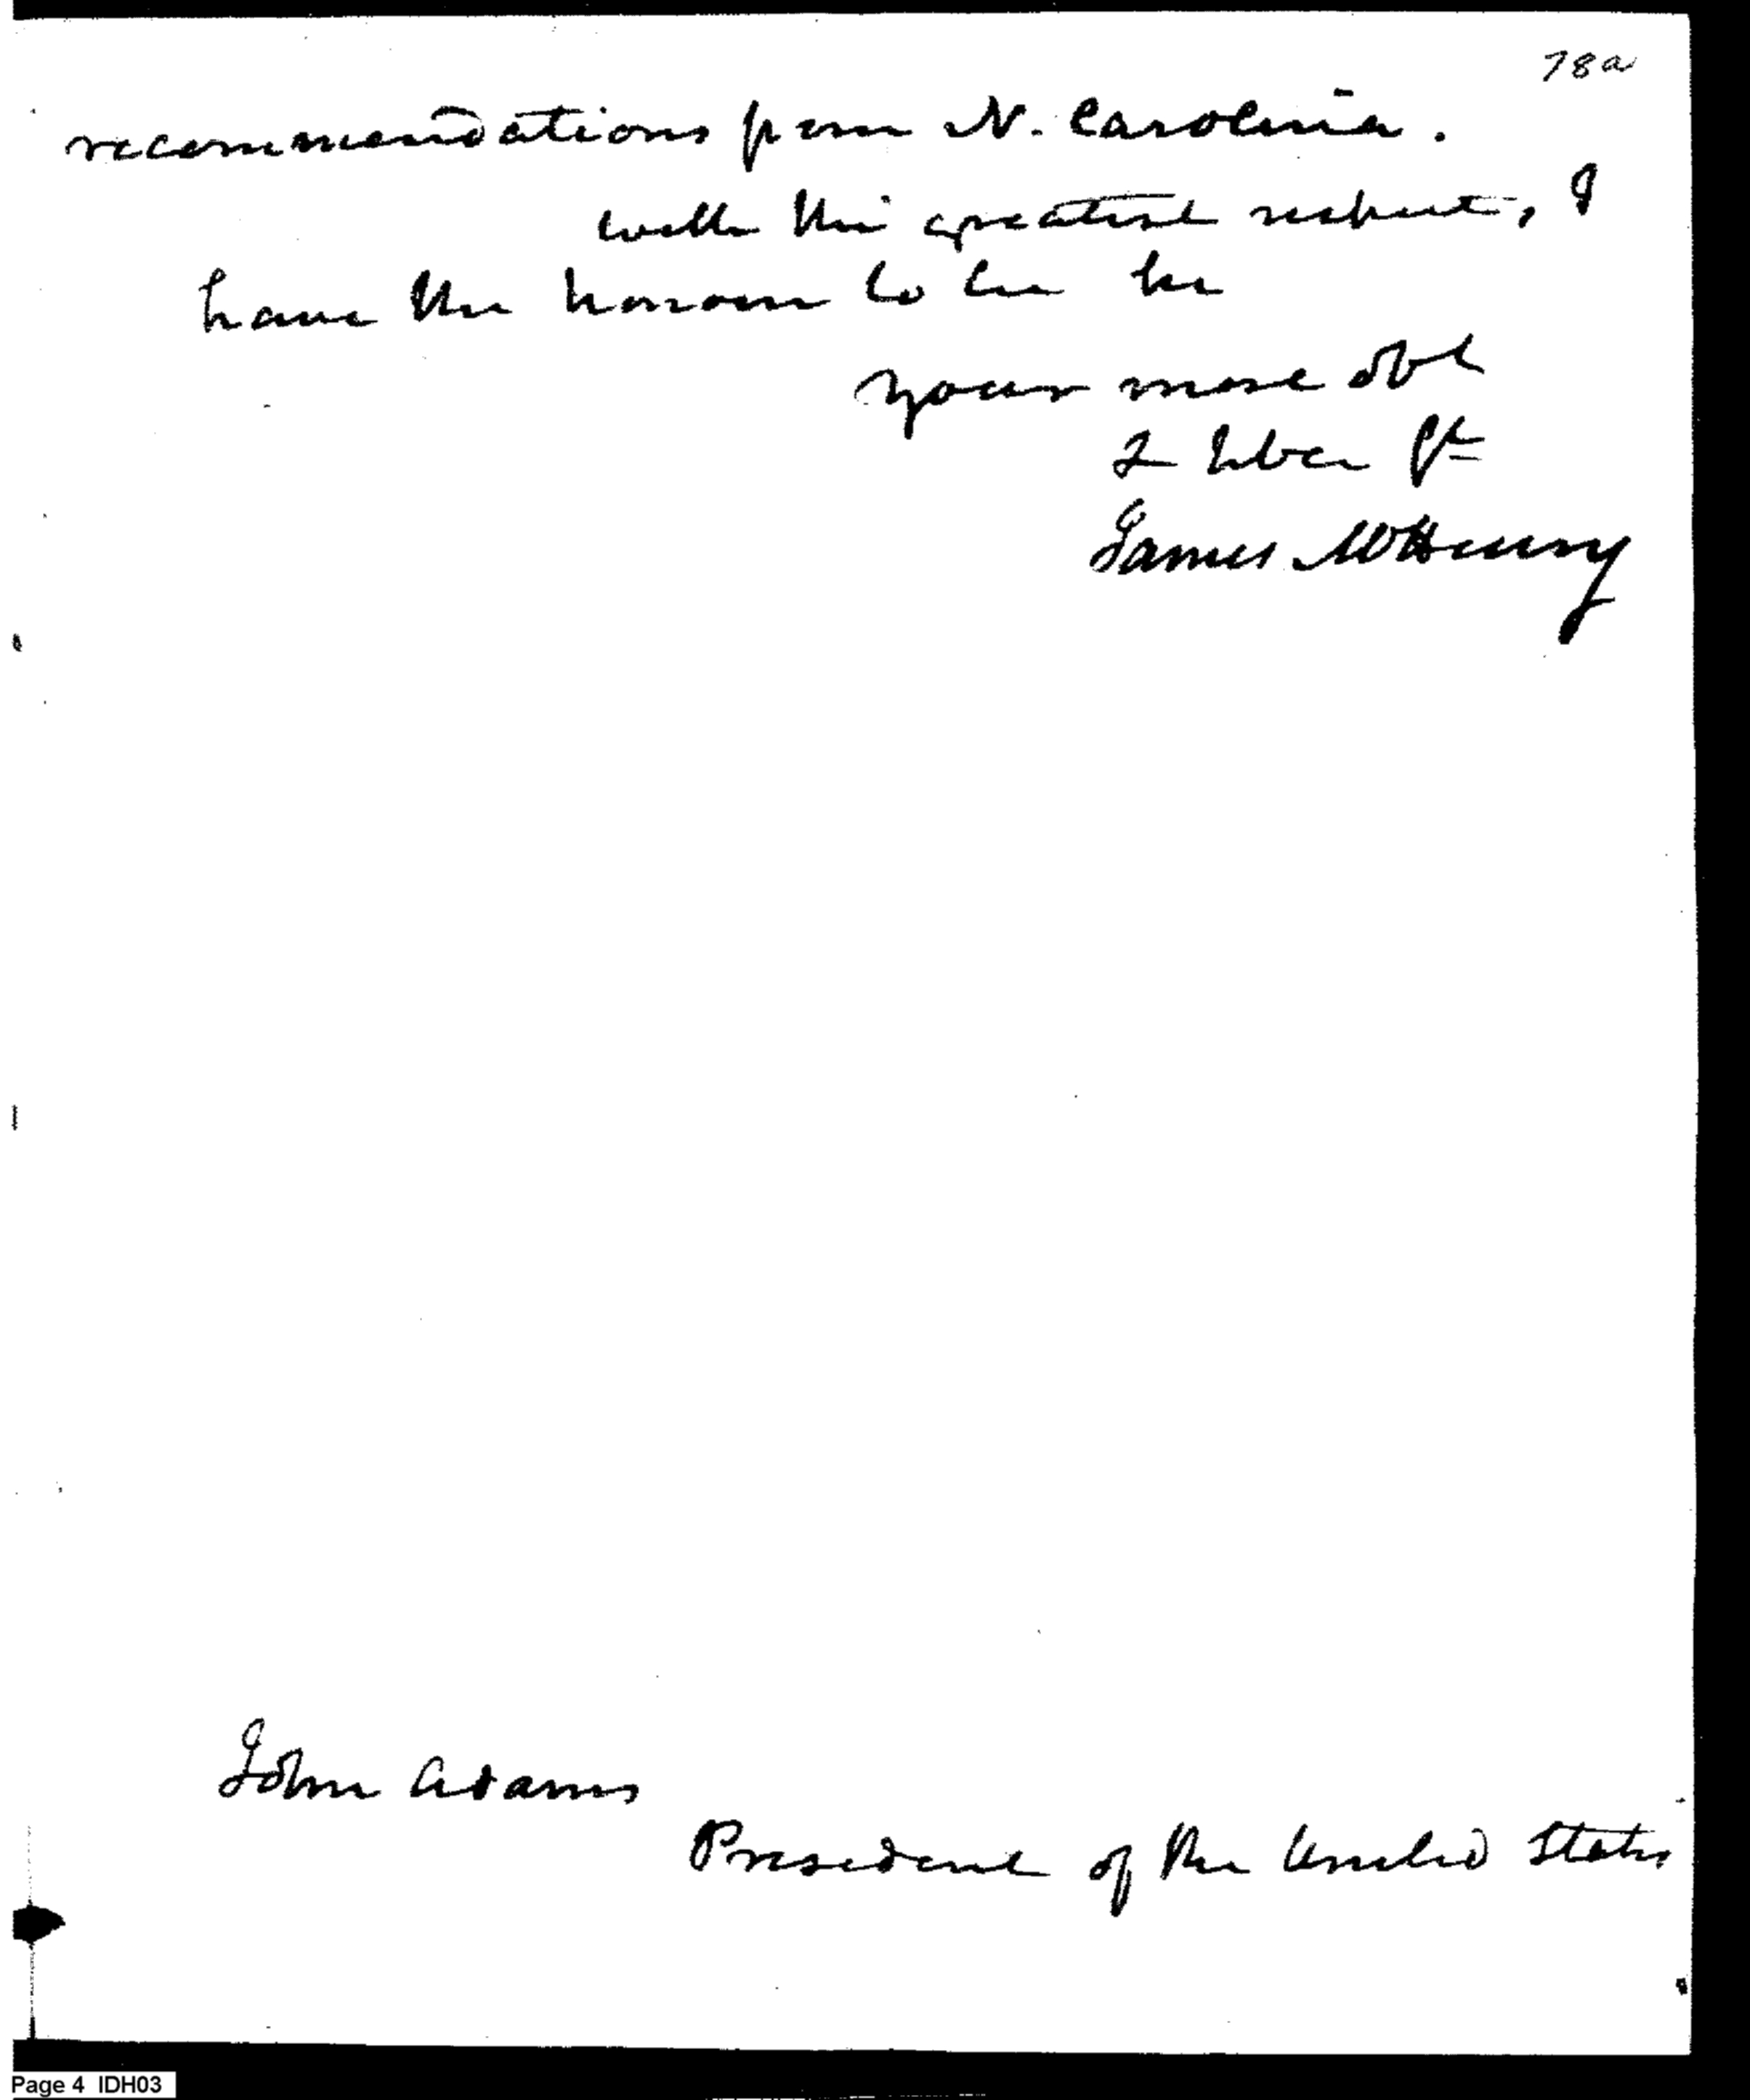 78a
recommendations from N. Carolina.
with the greatest respect, I
have the honour to be Sir
your most obt
& hble St
James McHenry
John Adams
President of the United States
Page 4 IDH03